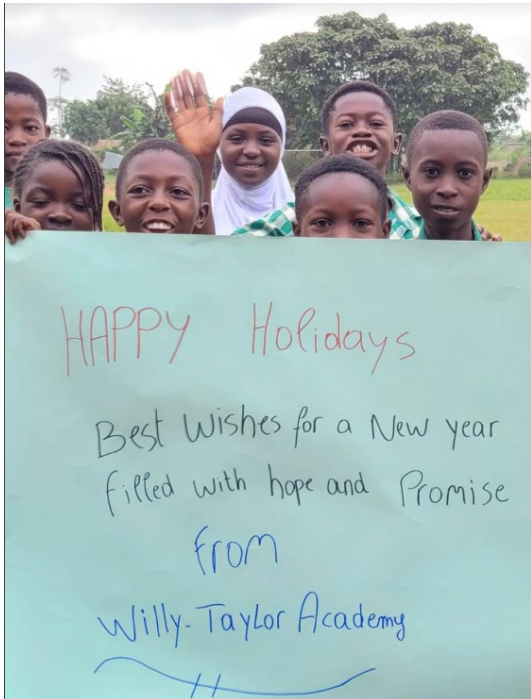 HAPPY Holidays
Best Wishes for a New year
filled with hope and Promise
from
Willy-Taylor Academy